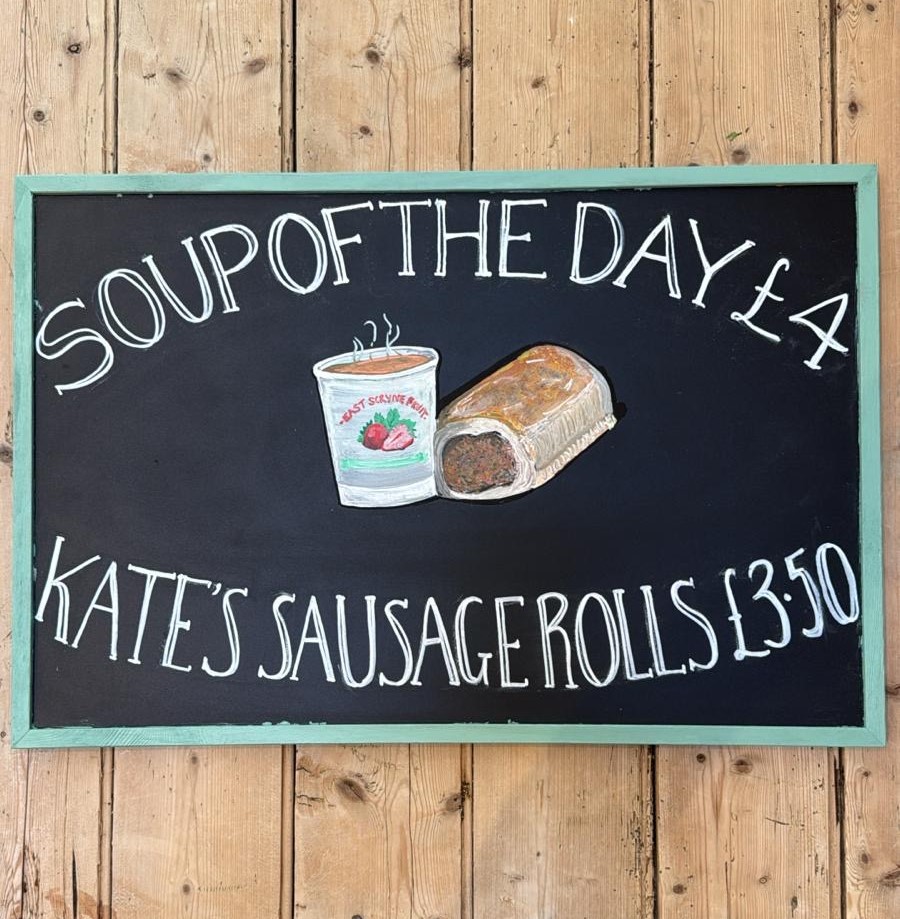 SOUP OF THE DAY £4
EAST SCRYNE FRUIT
KATE'S SAUSAGE ROLLS £3.50